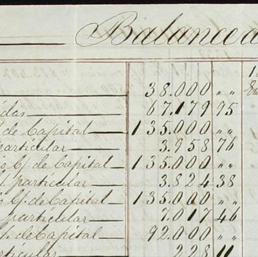 Balance d
38.000 " "
das 67.179 95
de Capital 135.000 " "
articular 3.958 76
G. de Capital 135.000 " "
particular 3.824 38
G. de Capital 135.000 " "
particular 7.017 46
G. de Capital 92.000 " "
ticular 228 11